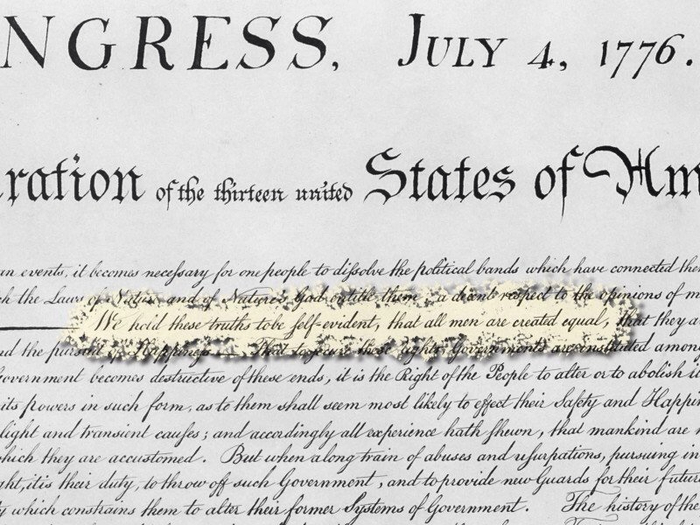 NGRESS, JULY 4, 1776.
ration of the thirteen united States of Am
an events, it becomes necessary for one people to dissolve the political bands which have connected the
the Laws of Nature and of Nature's God entitle them, a decent respect to the opinions of m
We hold these truths to be self-evident, that all men are created equal, that they a
nd the pursuit of Happiness That to secure these rights, Governments are instituted among
Government becomes destructive of these ends, it is the Right of the People to alter or to abolish it
its powers in such form, as to them shall seem most likely to effect their Safety and Happin
light and transient causes; and accordingly all experience hath shewn, that mankind are
which they are accustomed. But when a long train of abuses and usurpations, pursuing in
ght, it is their duty, to throw off such Government, and to provide new Guards for their future
y which constrains them to alter their former Systems of Government. The history of the